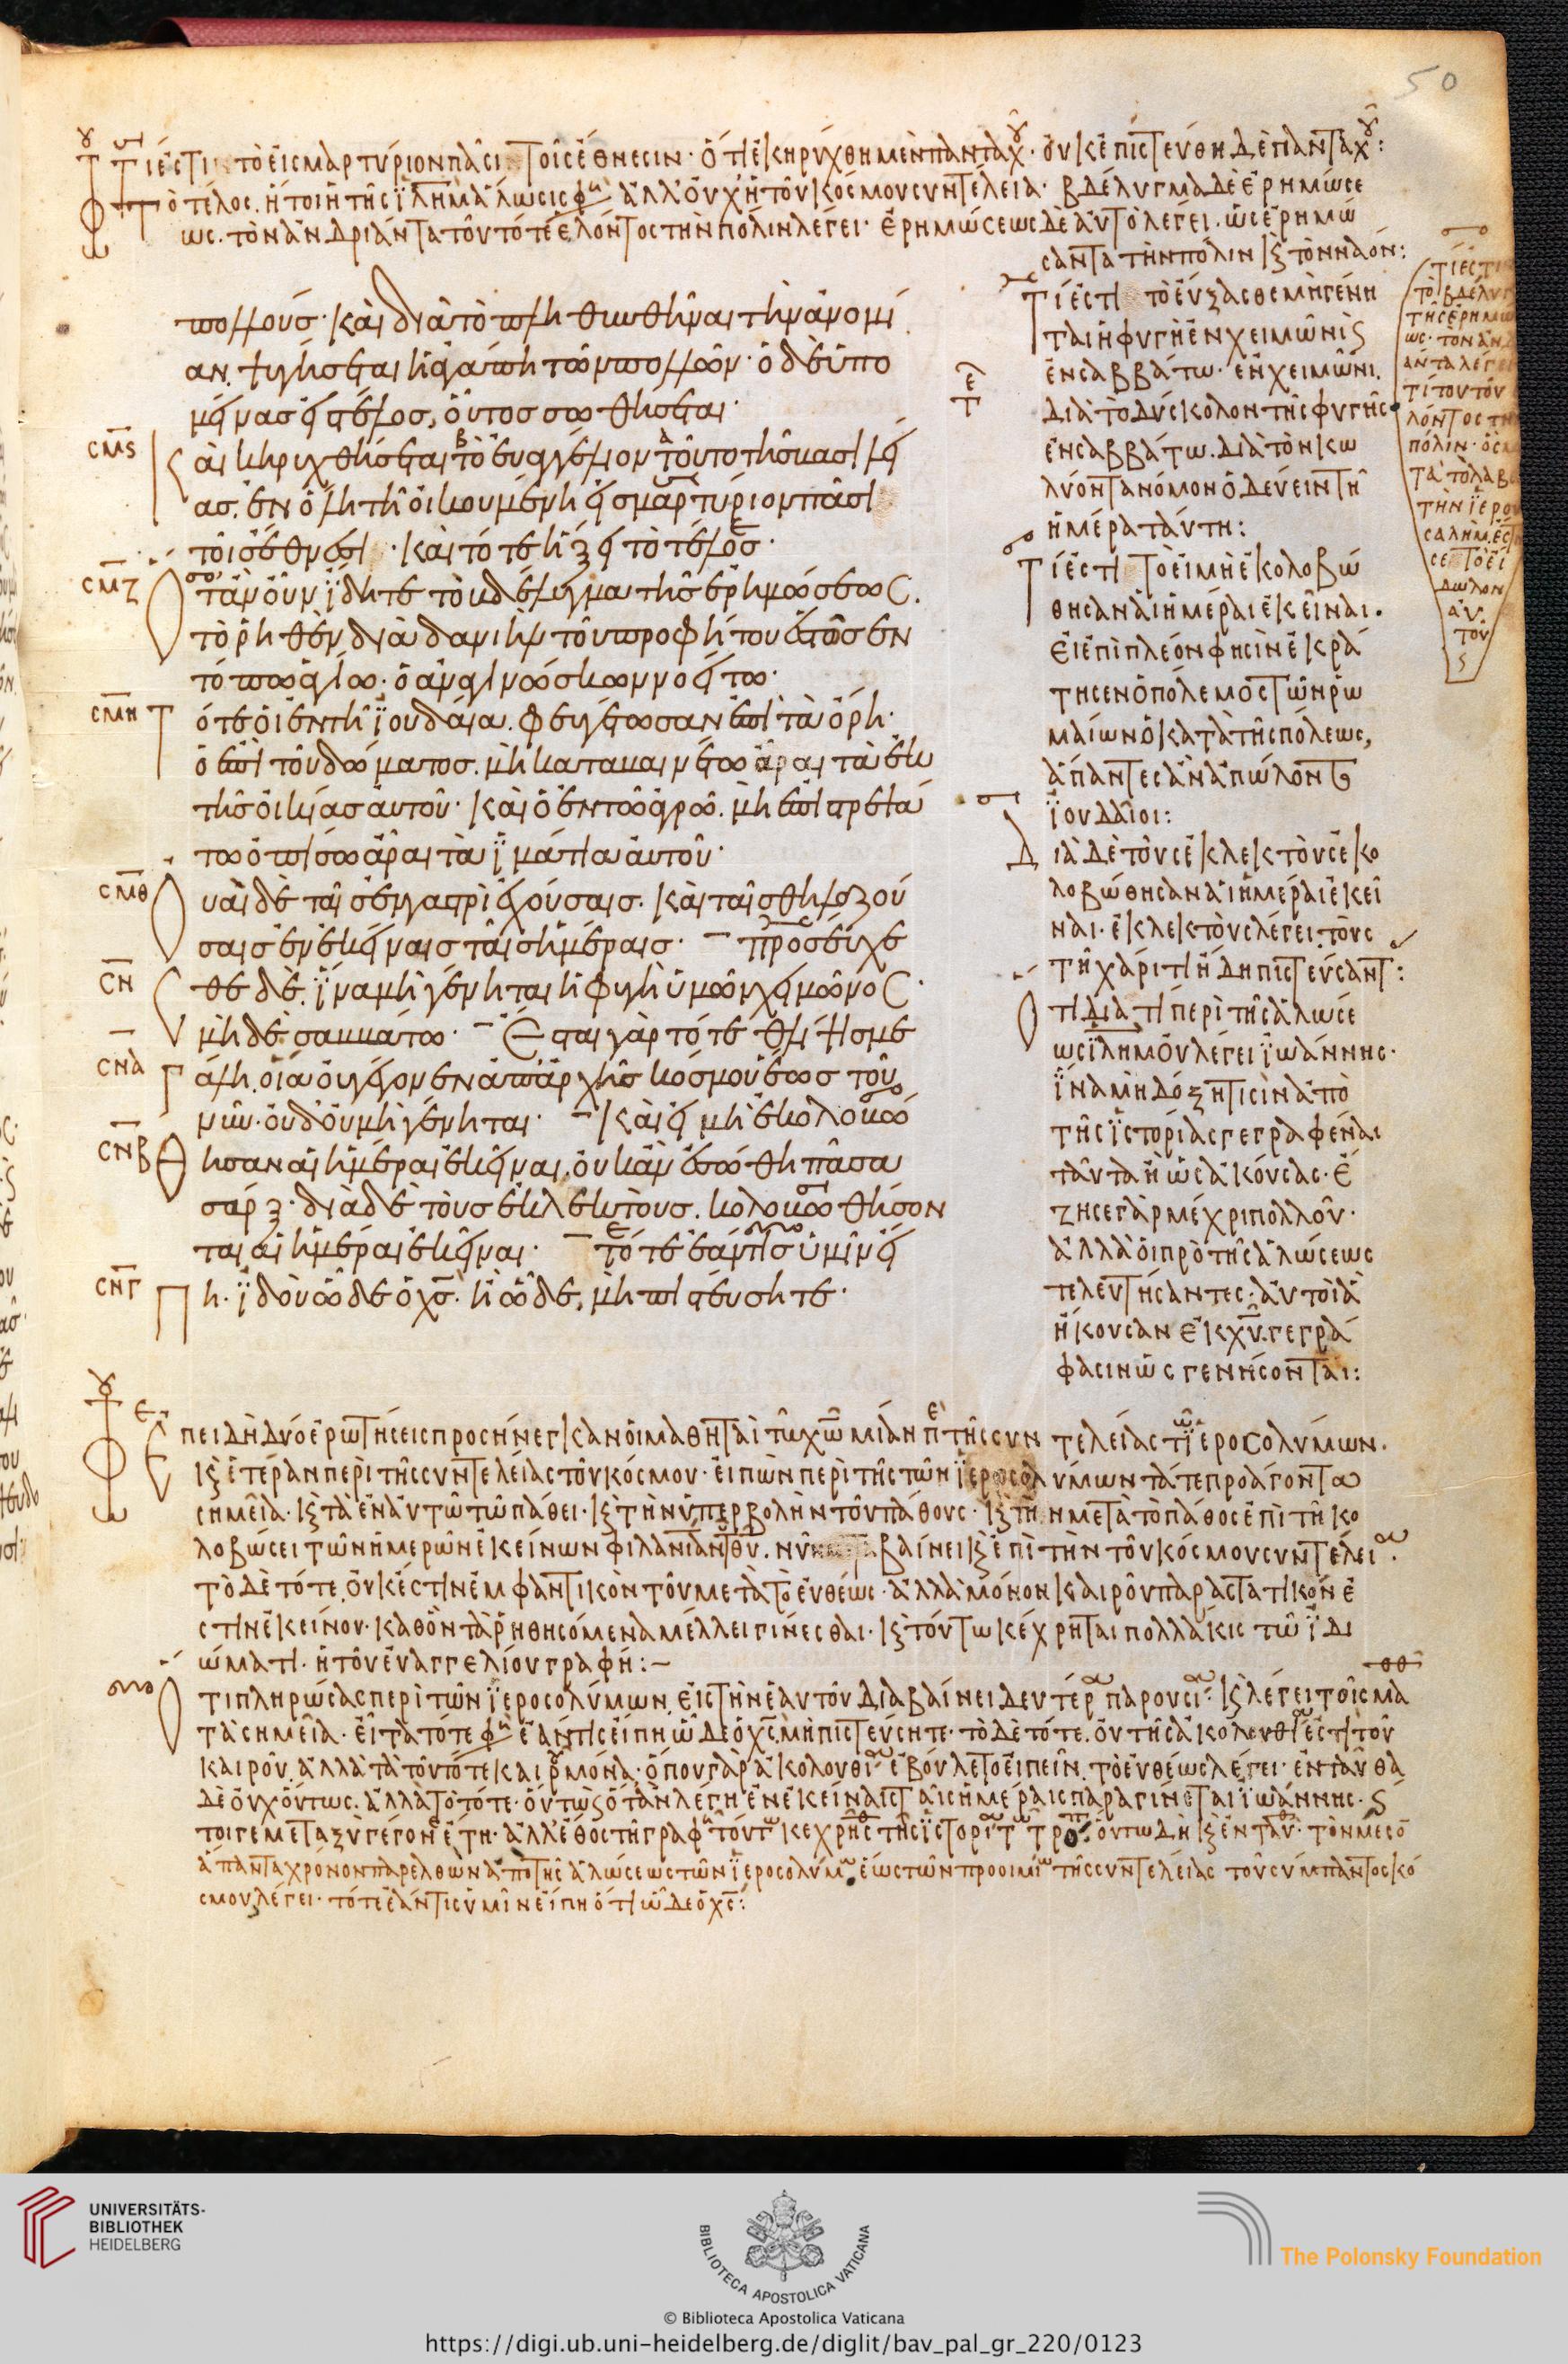 50
Τί ἐστι τὸ εἰς μαρτύριον πᾶσι τοῖς ἔθνεσιν· ὅτι ἐκηρύχθη μὲν πανταχοῦ· οὐκ ἐπιστεύθη δὲ πανταχοῦ:
Τὸ τέλος. ἤτοι ἡ τῆς ϊλημ ἅλωσις φη ἀλλ' οὐχ' ἡ τοῦ κόσμου συντέλεια· βδέλυγμα δὲ ἐρημώσε
ως. τὸν ἀνδριάντα τοῦ τότε ἑλόντος τὴν πόλιν λέγει· ἐρημώσεως δὲ αὐτὸ λέγει. ὡς ἐρημώ
σαντα τὴν πόλιν κ τὸν ναόν:
πολλούς· καὶ διὰ τὸ πληθυνθῆναι τὴν ἀνομί
αν. ψυγήσεται ἡ ἀγάπη τῶν πολλῶν· ὁ δὲ ὑπο
μείνας εἰς τέλος, οὗτος σωθήσεται·
ΣΜϚ Καὶ κηρυχθήσεται τὸ εὐαγγέλιον τοῦτο τῆς βασιλεί
ας. ἐν ὅλη τῆ οἰκουμένη εἰς μαρτύριον πᾶσι
τοῖς ἔθνεσι· καὶ τότε ἥξει τὸ τέλος·
ΣΜΖ Ὅταν οὖν ϊδητε τὸ βδέλυγμα τῆς ἐρημώσεως.
τὸ ῥηθὲν διὰ δανιὴλ τοῦ προφήτου ἑστὼς ἐν
τόπω ἁγίω· ὁ ἀναγινώσκων νοείτω·
ΣΜΗ Τότε οἱ ἐν τῆ ϊουδαία. φευγέτωσαν ἐπὶ τὰ ὄρη·
ὁ ἐπὶ τοῦ δώματος. μὴ καταβαινέτω ἆραι τὰ ἐκ
τῆς οἰκίας αὐτοῦ· καὶ ὁ ἐν τῶ ἀγρῶ. μὴ ἐπιστρεψά
τω ὀπίσω ἆραι τὰ ϊμάτια αὐτοῦ·
ΣΜΘ Οὐαὶ δὲ ταῖς ἐν γαστρὶ ἐχούσαις. καὶ ταῖς θηλαζού
σαις ἐν ἐκείναις ταῖς ἡμέραις· προσεύχε
ΣΝ σθε δὲ. ϊνα μὴ γένηται ἡ φυγὴ ὑμῶν χειμῶνος·
μηδὲ σαββάτω· Ἔσται γὰρ τότε θλίψις με
ΣΝΑ γάλη. οἵα οὐ γέγονεν ἀπ' ἀρχῆς κόσμου ἕως τοῦ
νῦν. οὐδ' οὐ μὴ γένηται· Καὶ εἰ μὴ ἐκολοβώ
ΣΝΒ θησαν αἱ ἡμέραι ἐκεῖναι. οὐκ ἂν ἐσώθη πᾶσα
σάρξ· διὰ δὲ τοὺς ἐκλεκτοὺς. κολοβωθήσον
ται αἱ ἡμέραι ἐκεῖναι· τότε ἐάν τις ὑμῖν εἴ
ΣΝΓ πη. ϊδοὺ ὧδε ὁ χς. ἢ ὧδε, μὴ πιστεύσητε·
Τί ἐστι τὸ εὔξασθε μὴ γένη
ται ἡ φυγὴ ἐν χειμῶνι κ
ἐν σαββάτω· ἐν χειμῶνι.
διὰ τὸ δύσκολον τῆς φυγῆς
ἐν σαββάτω. διὰ τὸν κω
λύοντα νόμον ὁδεύειν τῆ
ἡμέρα ταύτη:
Τί ἐστι τὸ εἰ μὴ ἐκολοβώ
θησαν αἱ ἡμέραι ἐκεῖναι.
εἰ ἐπὶ πλέον φησὶν ἐκρά
τησεν ὁ πόλεμος τῶν ῥω
μαίων ὁ κατὰ τῆς πόλεως,
ἅπαντες ἂν ἀπώλοντο
ϊουδαῖοι:
Διὰ δὲ τοὺς ἐκλεκτοὺς ἐκο
λοβώθησαν αἱ ἡμέραι ἐκεῖ
ναι. ἐκλεκτοὺς λέγει τοὺς
τῆ χάριτι ἤδη πιστεύσαντ:
Ὅτι διατί περὶ τῆς ἁλώσε
ως ϊλημ οὐ λέγει ϊωάννης·
ϊνα μὴ δόξη τισὶν ἀπὸ
τῆς ϊστορίας γεγραφέναι
ταῦτα ἢ ὡς ἀκούσας· ἔ
ζησε γὰρ μέχρι πολλοῦ·
ἀλλὰ οἱ πρὸ τῆς ἁλώσεως
τελευτήσαντες· αὐτοὶ ἃ
ἤκουσαν ἐκ χυ. γεγρά
φασιν ὡς γενήσονται:
Τί ἐστι
τὸ βδέλυγ
τῆς ἐρημώ
ως· τὸν ἀν
άντα λέγει
τὶ τοῦτον
λόντος τὴν
πόλιν· ὃς
τὰ τὸ λαβ
τὴν ϊερου
σαλὴμ. ἔστ
σε τὸ εἴ
δωλον
αὐ
τοῦ
Ἐπειδὴ δύο ἐρωτήσεις προσήνεγκαν οἱ μαθηταὶ τῶ χω μίαν π τῆς συντελείας τ ϊεροσολύμων.
κ ἑτέραν περὶ τῆς συντελείας τοῦ κόσμου· εἰπὼν περὶ τῆς τῶν ϊεροσολύμων τά τε προάγοντα
σημεῖα. κ τὰ ἐν αὐτῶ τῶ πάθει. κ τὴν ὑπερβολὴν τοῦ πάθους. κ τὴν μετὰ τὸ πάθος ἐπὶ τῆ κο
λοβώσει τῶν ἡμερῶν ἐκείνων φιλανίαν θυ. νῦν βαίνει κ ἐπὶ τὴν τοῦ κόσμου συντέλει.
τὸ δὲ τότε. οὐκ ἔστιν ἐμφαντικὸν τοῦ μετὰ τὸ εὐθέως· ἀλλὰ μόνον καιροῦ παραστατικόν ἐ
στιν ἐκείνου· καθ' ὃν τὰ ῥηθησόμενα μέλλει γίνεσθαι. κ τούτω κέχρηται πολλάκις τῶ ϊδι
ώματι. ἡ τοῦ εὐαγγελίου γραφή:~
Ὅτι πληρώσας περὶ τῶν ϊεροσολύμων. εἰς τὴν ἑαυτοῦ διαβαίνει δευτέρ παρουσί. κ λέγει τοῖς μα
τὰ σημεῖα. εἶτα τότε φη ἐάν τις εἴπη ὧδε ὁ χς, μὴ πιστεύσητε· τὸ δὲ τότε. οὐ τῆς ἀκολουθ ἐστι τοῦ
καιροῦ. ἀλλὰ τὰ τοῦ τότε καιρ μόνα· ὅπου γὰρ ἀκολουθί ἐβούλετο εἰπεῖν. τὸ εὐθέως λέγει· ἐνταῦθα
δὲ οὐχ οὕτως. ἀλλὰ τὸ τότε· οὕτως ὅταν λέγη ἐν ἐκείναις ταῖς ἡμέραις παραγίνεται ϊωάννης. κ
τοιγε μεταξὺ γέγον ἔτη· ἀλλ' ἔθος τῆ γραφ τούτ κεχρῆσ τῆς ϊστορί τ τρ. οὕτω δὴ κ ἐνταῦ. τὸν μέσο
ἅπαντα χρόνον παρελθὼν ἀπὸ τῆς ἁλώσεως τῶν ϊεροσολύμ. ἕως τῶν προοιμί τῆς συντελείας τοῦ σύμπαντος κό
σμου. λέγει. τότε ἐάν τις ὑμῖν εἴπη ὅτι ὧδε ὁ χς:
UNIVERSITÄTS-
BIBLIOTHEK
HEIDELBERG
BIBLIOTECA APOSTOLICA VATICANA
The Polonsky Foundation
© Biblioteca Apostolica Vaticana
https://digi.ub.uni-heidelberg.de/diglit/bav_pal_gr_220/0123